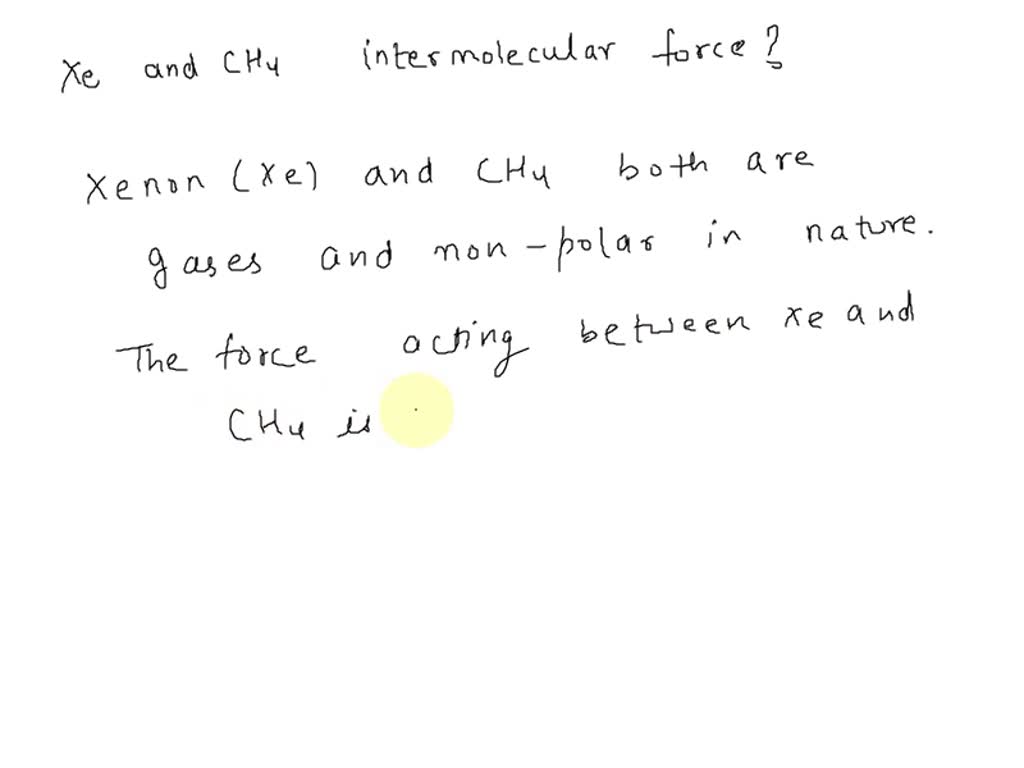 Xe and CH4 intermolecular force?
Xenon (Xe) and CH4 both are
gases and non-polar in nature.
The force acting between xe and
CH4 is